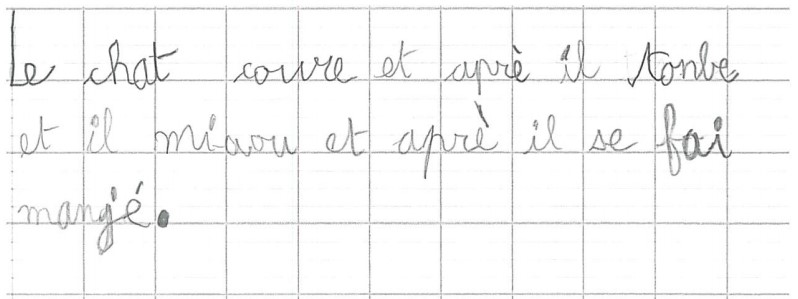 Le chat coure et aprè il tonbe
et il miaou et aprè il se fai
mangé.